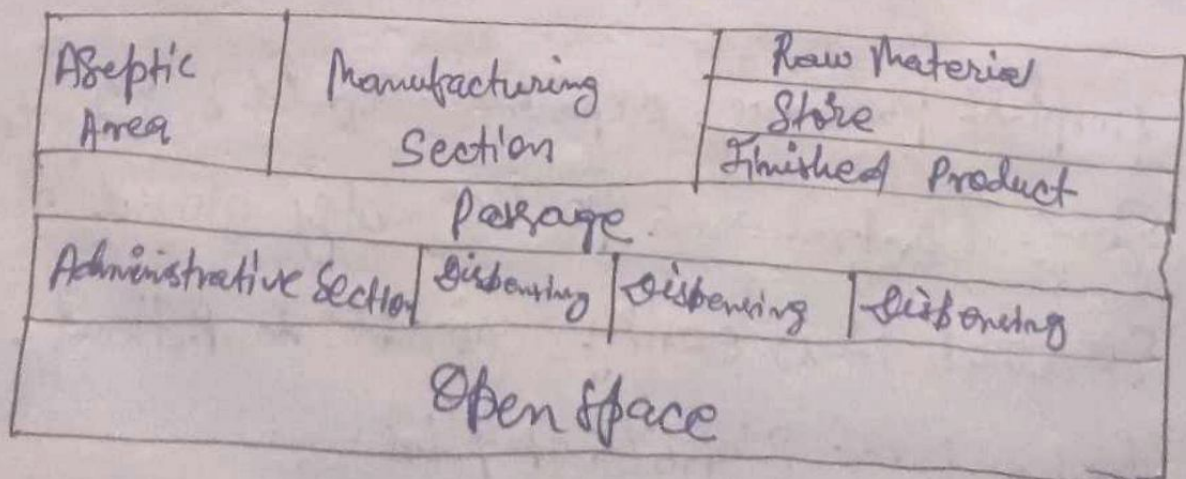 Aseptic
Area
Manufacturing
Section
Raw Material
Store
Finished Product
Passage
Administrative Section
Dispensing
Dispensing
Dispensing
Open Space